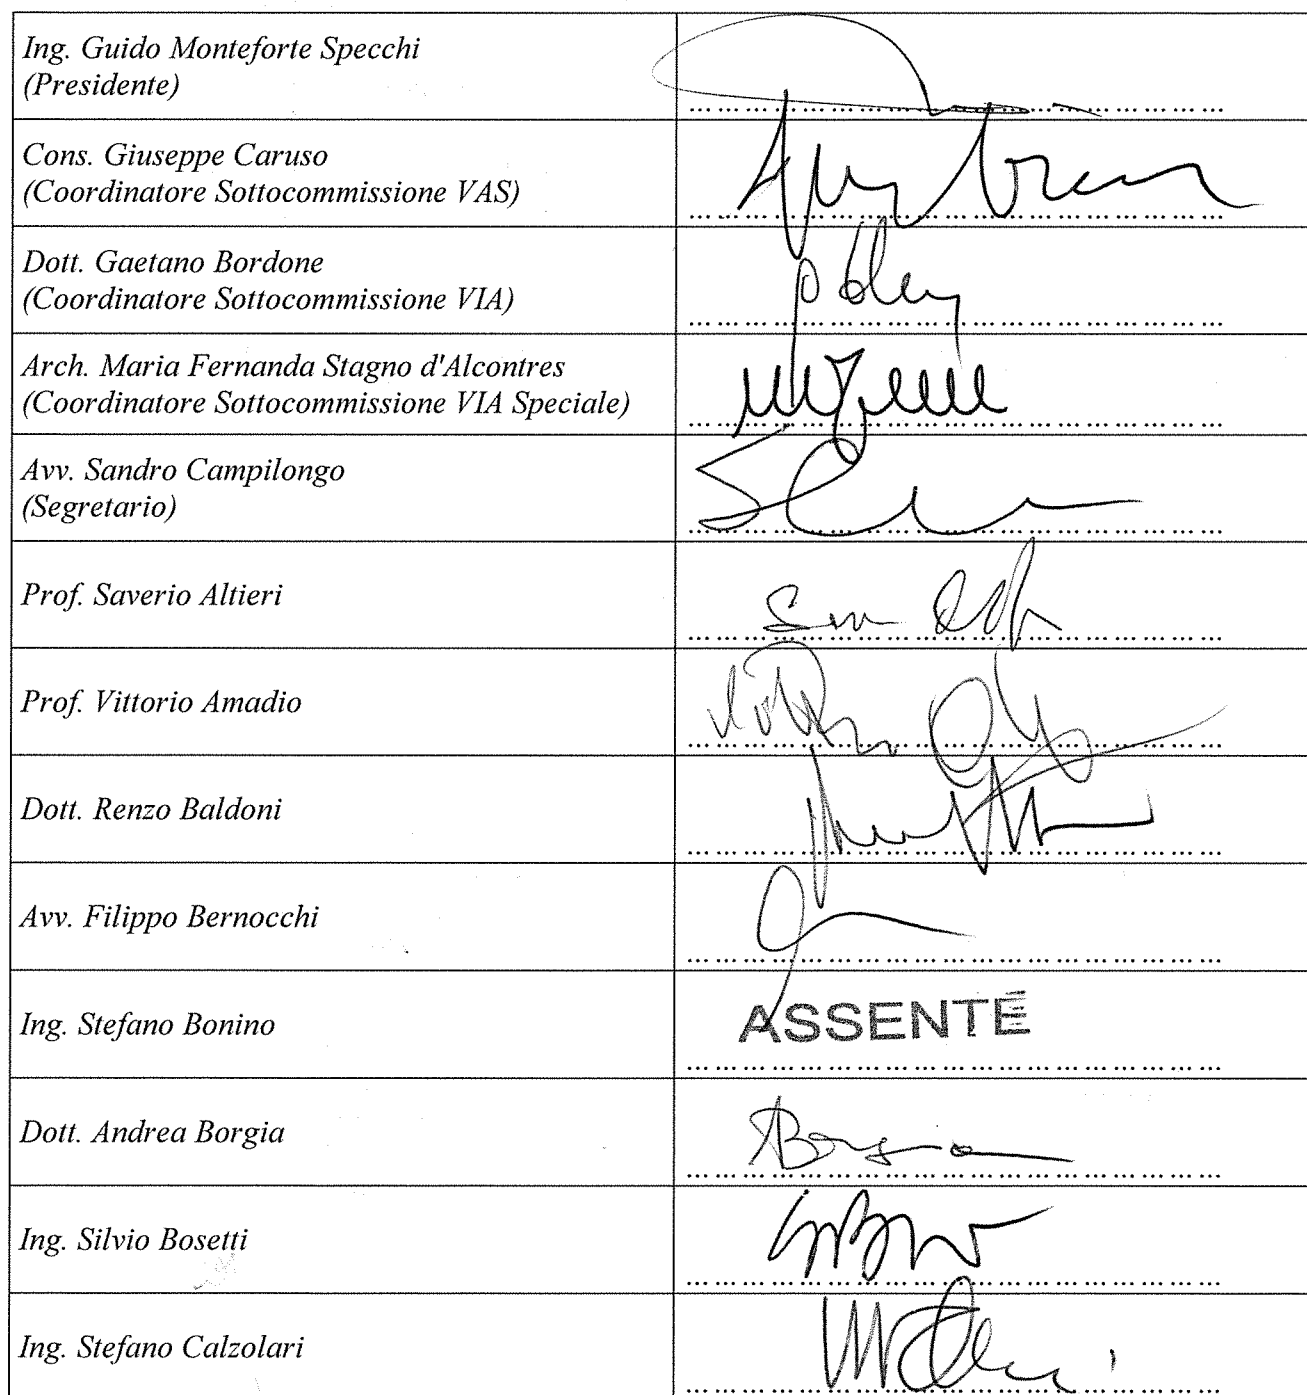 Ing. Guido Monteforte Specchi
(Presidente)
Cons. Giuseppe Caruso
(Coordinatore Sottocommissione VAS)
Dott. Gaetano Bordone
(Coordinatore Sottocommissione VIA)
Arch. Maria Fernanda Stagno d'Alcontres
(Coordinatore Sottocommissione VIA Speciale)
Avv. Sandro Campilongo
(Segretario)
Prof. Saverio Altieri
Prof. Vittorio Amadio
Dott. Renzo Baldoni
Avv. Filippo Bernocchi
Ing. Stefano Bonino
ASSENTE
Dott. Andrea Borgia
Ing. Silvio Bosetti
Ing. Stefano Calzolari